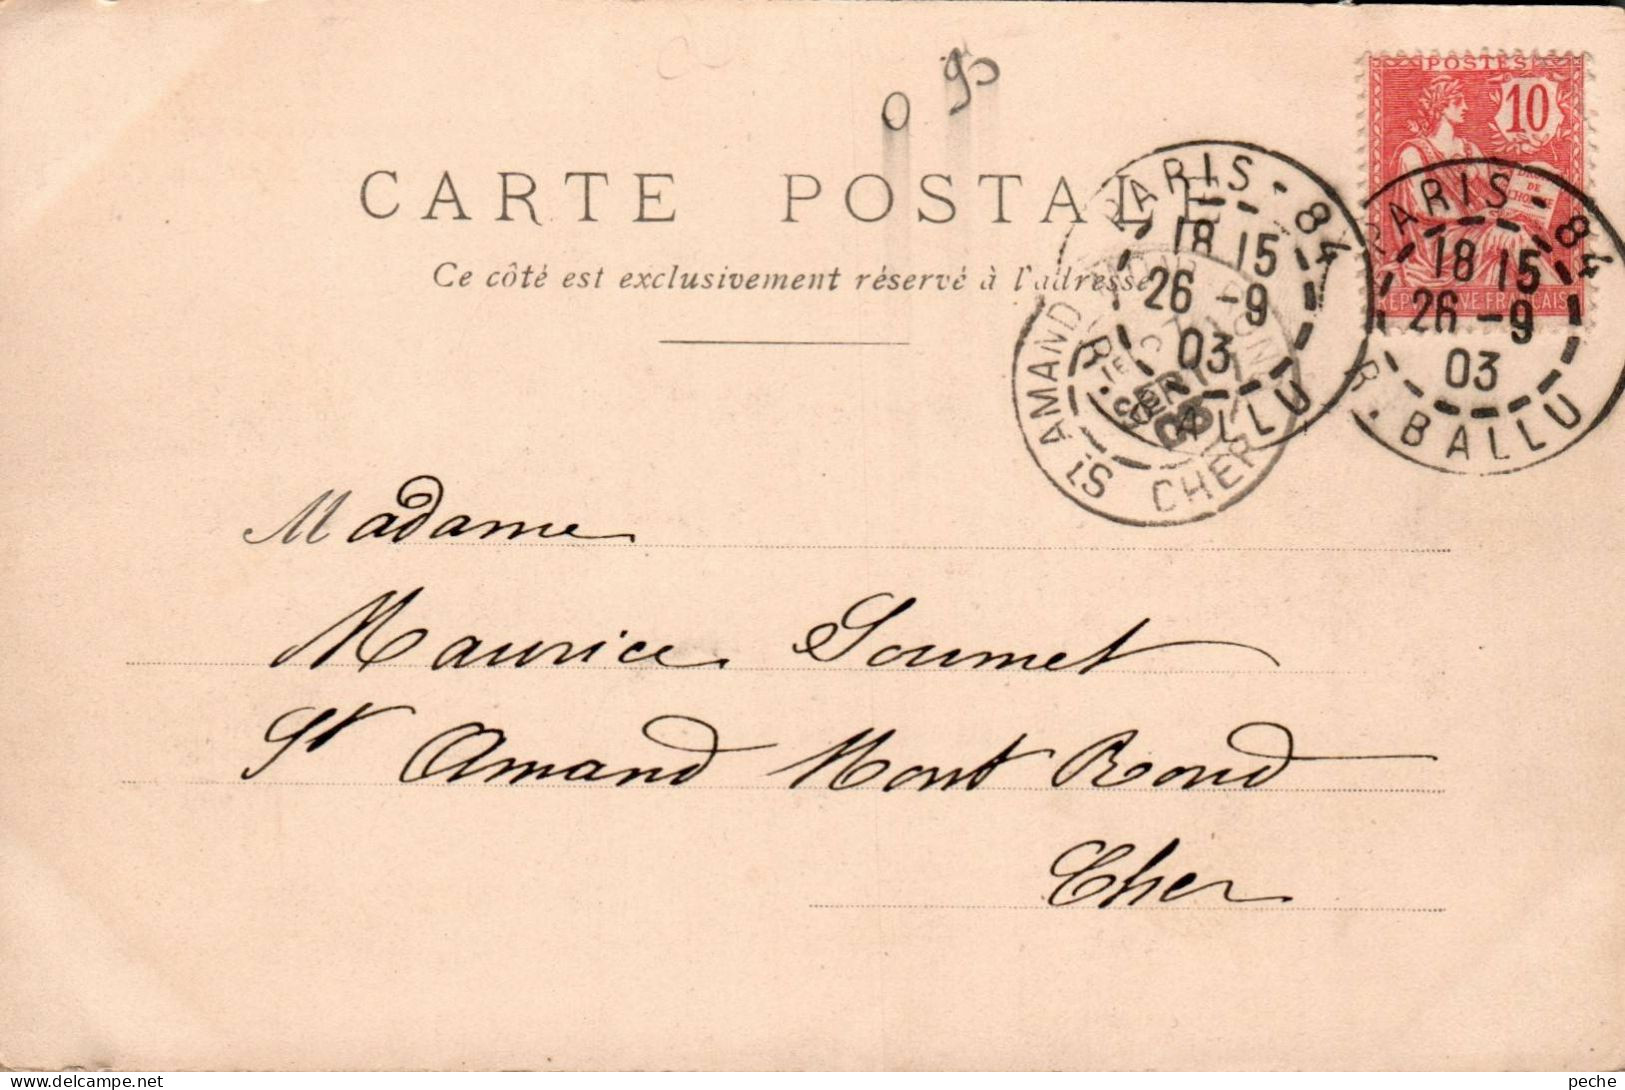 0 95
POSTES
10
DROITS
DE
L'HOMME
RÉPUBLIQUE FRANÇAISE
CARTE POSTALE
Ce côté est exclusivement réservé à l'adresse
PARIS - 84
18 15
26 - 9
03
R. BALLU
PARIS - 84
18 15
26 - 9
03
R. BALLU
ST AMAND MONT ROND
CHER
03
Madame
Maurice Soumet
St Amand Mont Rond
Cher
peche